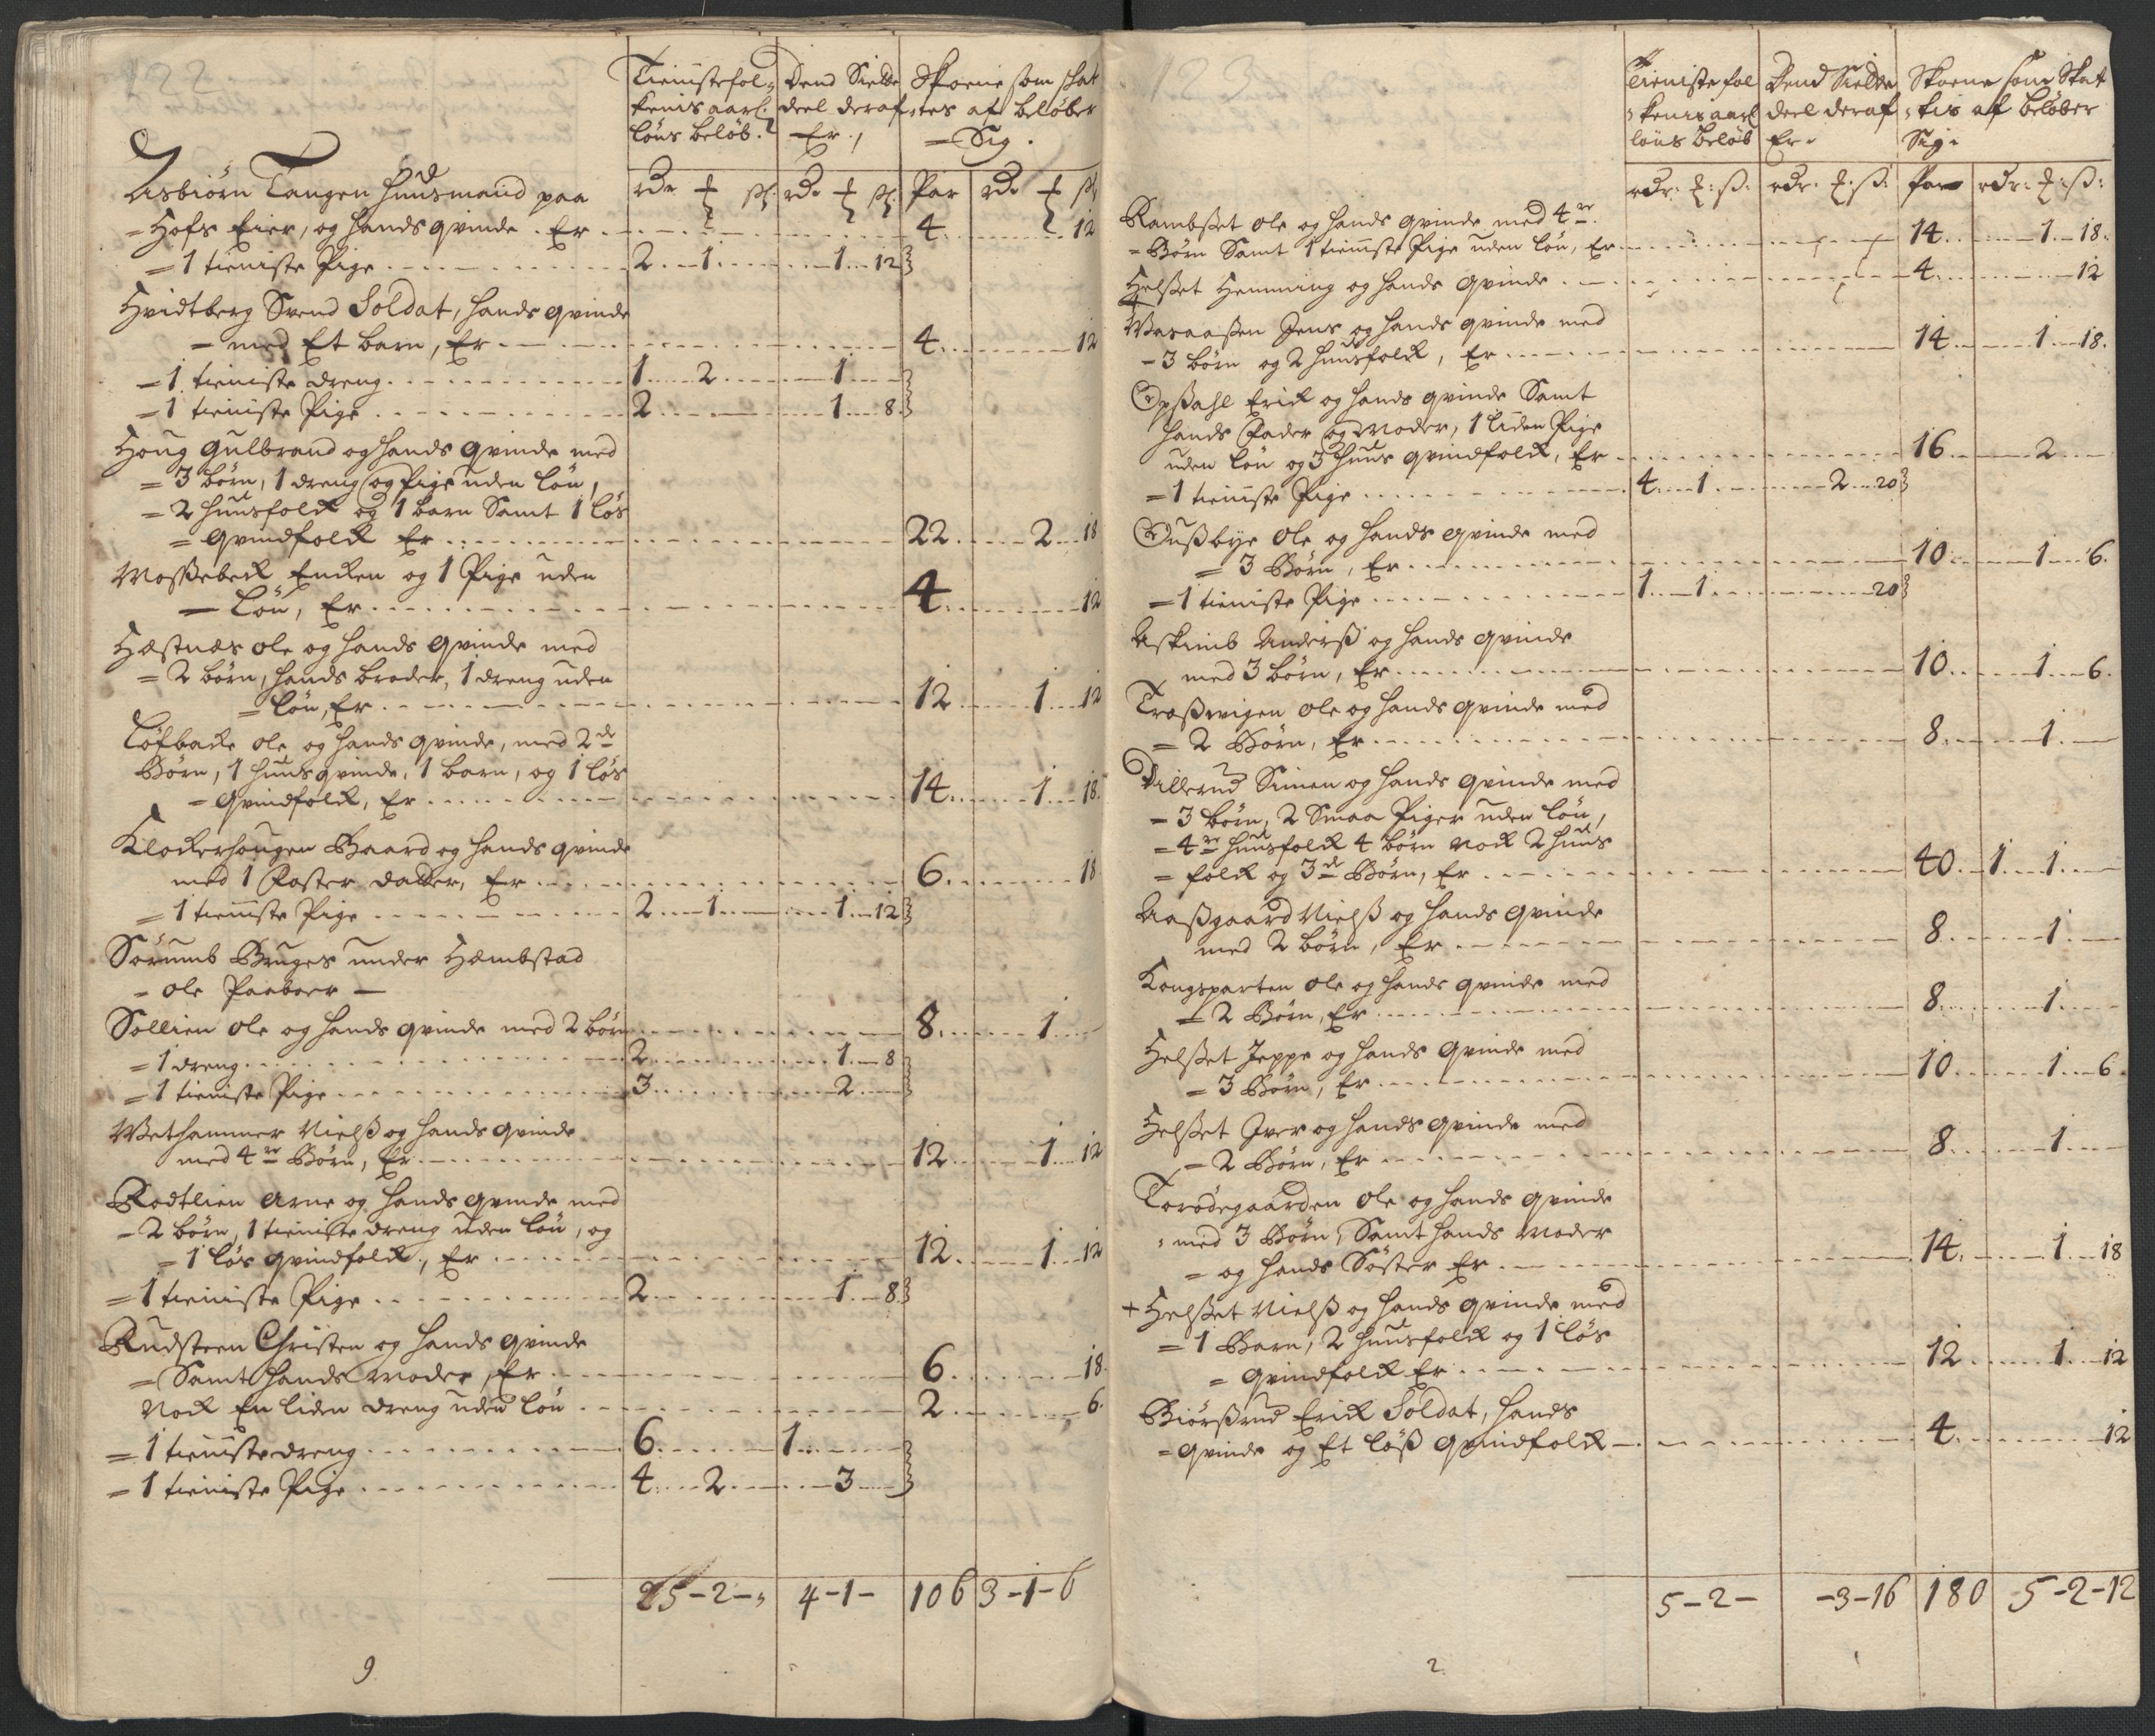 122
Tieniistefol- Dend Siette Skoene som skat
kenis aarl. deel deraf tes af beløber
løns beløb. Er, Sig.
rdr ß rdr ß Par rdr ß
Asbiørn Tangen Huusmand paa
= Hofs Eier, og hands qvinde. Er 4 12
= 1 tieniste Pige 2 1 1 12
Hvidtberg Svend Soldat, hands qvinde
= med Et barn, Er 4 12
= 1 tieniste dreng 1 2 1
= 1 tieniste Pige 2 1 8
Houg Gulbrand og hands qvinde med
= 3 børn, 1 dreng og Pige uden løn,
= 2 huusfolck og 1 barn Samt 1 løs
= qvindfolck Er 22 2 18
Mossebeck Encken og 1 Pige uden
= Løn, Er 4 12
Hæstnæs Ole og hands qvinde med
= 2 børn, hands broder, 1 dreng uden
= løn, Er 12 1 12
Løfbacke Ole og hands qvinde, med 2de
Børn, 1 huusqvinde, 1 barn, og 1 løs
= qvindfolck, Er 14 1 18
Klockerhougen Baard og hands qvinde
med 1 Foster datter, Er 6 18
= 1 tieniste Pige 2 1 1 12
Sørumb Bruges under Hæmbstad
= Ole Paaboer —
Sollien Ole og hands qvinde med 2 børn 8 1
= 1 dreng 2 1 8
= 1 tieniste Pige 3 2
Wethammer Nielß og hands qvinde
med 4re Børn, Er 12 1 12
Rodtlien Arne og hands qvinde med
= 2 børn, 1 tieniste dreng uden løn, og
= 1 løs qvindfolck, Er 12 1 12
= 1 tieniste Pige 2 1 8
Rudsteen Christen og hands qvinde
= Samt hands Moder, Er 6 18
Nock En liden dreng uden løn 2 6
= 1 tienistedreng 6 1
= 1 tieniste Pige 4 2 3
25-2- 4-1- 106 3-1-6
9
123
Tieniste fol Dend Siette Skoene som Skat
kenis aarl deel deraf tis af beløber
løns beløb Er Sig
rdr: ß: rdr: ß: Par rdr: ß:
Rambßet Ole og hands qvinde med 4re
= Børn Samt 1 tieniste Pige uden løn, Er 14 1 18
Helßet Hemming og hands qvinde 4 12
Wasaaßen Jens og hands qvinde med
= 3 børn og 2 huusfolck, Er 14 1 18
Opßahl Erick og hands qvinde Samt
hands Fader og Moder, 1 liden Pige
uden løn og 3 huus qvindfolck, Er 16 2
= 1 tieniste Pige 4 1 2 20
Oußbye Ole og hands qvinde med
= 3 Børn, Er 10 1 6
= 1 tieniste Pige 1 1 20
Askimb Anderß og hands qvinde
med 3 børn, Er 10 1 6
Troßwigen Ole og hands qvinde med
= 2 Børn, Er 8 1
Dillerud Simen og hands qvinde med
= 3 børn, 2 Smaa Piger uden løn,
= 4re huusfolck 4 børn Nock 2 huus
= folck og 3de Børn, Er 40 1 1
Aaßgaard Nielß og hands qvinde
med 2 børn, Er 8 1
Kongsparten Ole og hands qvinde med
= 2 Børn, Er 8 1
Helßet Jeppe og hands qvinde med
= 3 Børn, Er 10 1 6
Helßet Iver og hands qvinde med
= 2 Børn, Er 8 1
Torødegaarden Ole og hands qvinde
= med 3 Børn, Samt hands Moder
= og hands Søster Er 14 1 18
+ Helßet Nielß og hands qvinde med
= 1 Barn, 2 huusfolck og 1 løs
= qvindfolck Er 12 1 12
Biørßrud Erick Soldat, hands
= qvinde og Et løß qvindfolck 4 12
5-2- -3-16 180 5-2-12
2